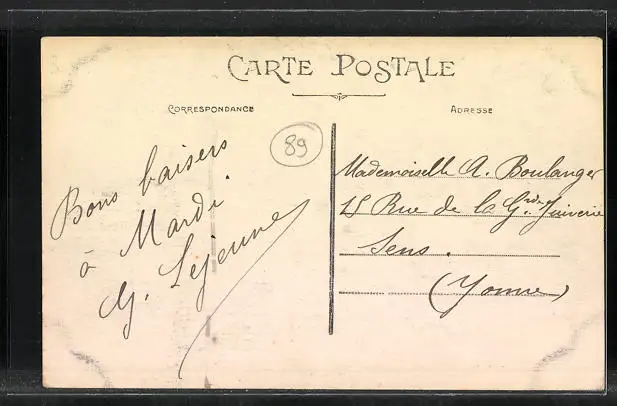 CARTE POSTALE
CORRESPONDANCE
ADRESSE
89
Bons baisers
à Mardi.
G. Lejeune
Mademoiselle A. Boulanger
15 Rue de la Gde Juiverie
Sens.
(Yonne)